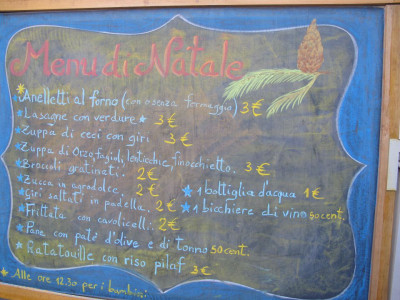 Menu di Natale
Anelletti al forno (con o senza formaggio) 3€
Lasagne con verdure 3€
Zuppa di ceci con giri 3€
Zuppa di Orzo, fagioli, lenticchie, finocchietto. 3€
Broccoli gratinati: 2€
Zucca in agrodolce. 2€
Giri saltati in padella. 2€
Frittata con cavolicelli: 2€
Pane con patè d'olive e di tonno 50 cent.
Ratatouille con riso pilaf 3€
1 bottiglia d'acqua 1€
1 bicchiere di vino 50 cent.
Alle ore 12.30 per i bambini: